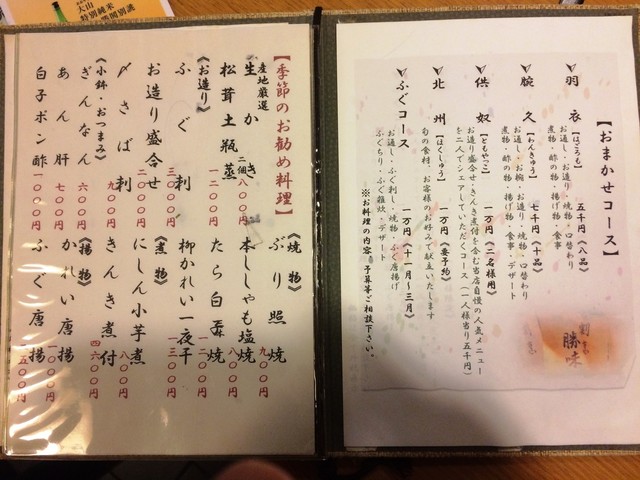 【おまかせコース】
羽衣 【はごろも】 五千円（八品）
お通し・お造り・焼物・口替わり
煮物・酢の物・揚げ物・食事
腕久 【わんきゅう】 七千円（十品）
お通し・お椀・お造り・焼物・口替わり
煮物・酢の物・揚げ物・食事・デザート
供奴 【ともやっこ】 一万円（二名様用）
お造り盛合せ・きんき煮付を含む当店自慢の人気メニュー
を二人でシェアしていただくコース（一人様当り五千円）
北州 【ほくしゅう】 一万円（要予約）
旬の食材、お客様のお好みで献立いたします
ふぐコース 一万円（十一月～三月）
お通し・ふぐ刺し・焼物・ふぐ唐揚げ
ふぐちり・ふぐ雑炊・デザート
※お料理の内容、予算等ご相談下さい。
勝味
【季節のお勧め料理】
産地厳選
生かき 二個 八〇〇円
松茸土瓶蒸 一二〇〇円
《お造り》
ふぐ刺 三〇〇〇円
お造り盛合せ 二〇〇〇円
〆さば刺 九〇〇円
《小鉢・おつまみ》
ぎんなん 六〇〇円
あん肝 七〇〇円
白子ポン酢 一〇〇〇円
《焼物》
ぶり照焼 九〇〇円
本ししゃも塩焼 八〇〇円
たら白子焼 一二〇〇円
柳かれい一夜干 一三〇〇円
《煮物》
にしん小芋煮 八〇〇円
きんき煮付 四六〇〇円
《揚物》
かれい唐揚 一〇〇〇円
ふぐ唐揚 一五〇〇円
大山
特別純米